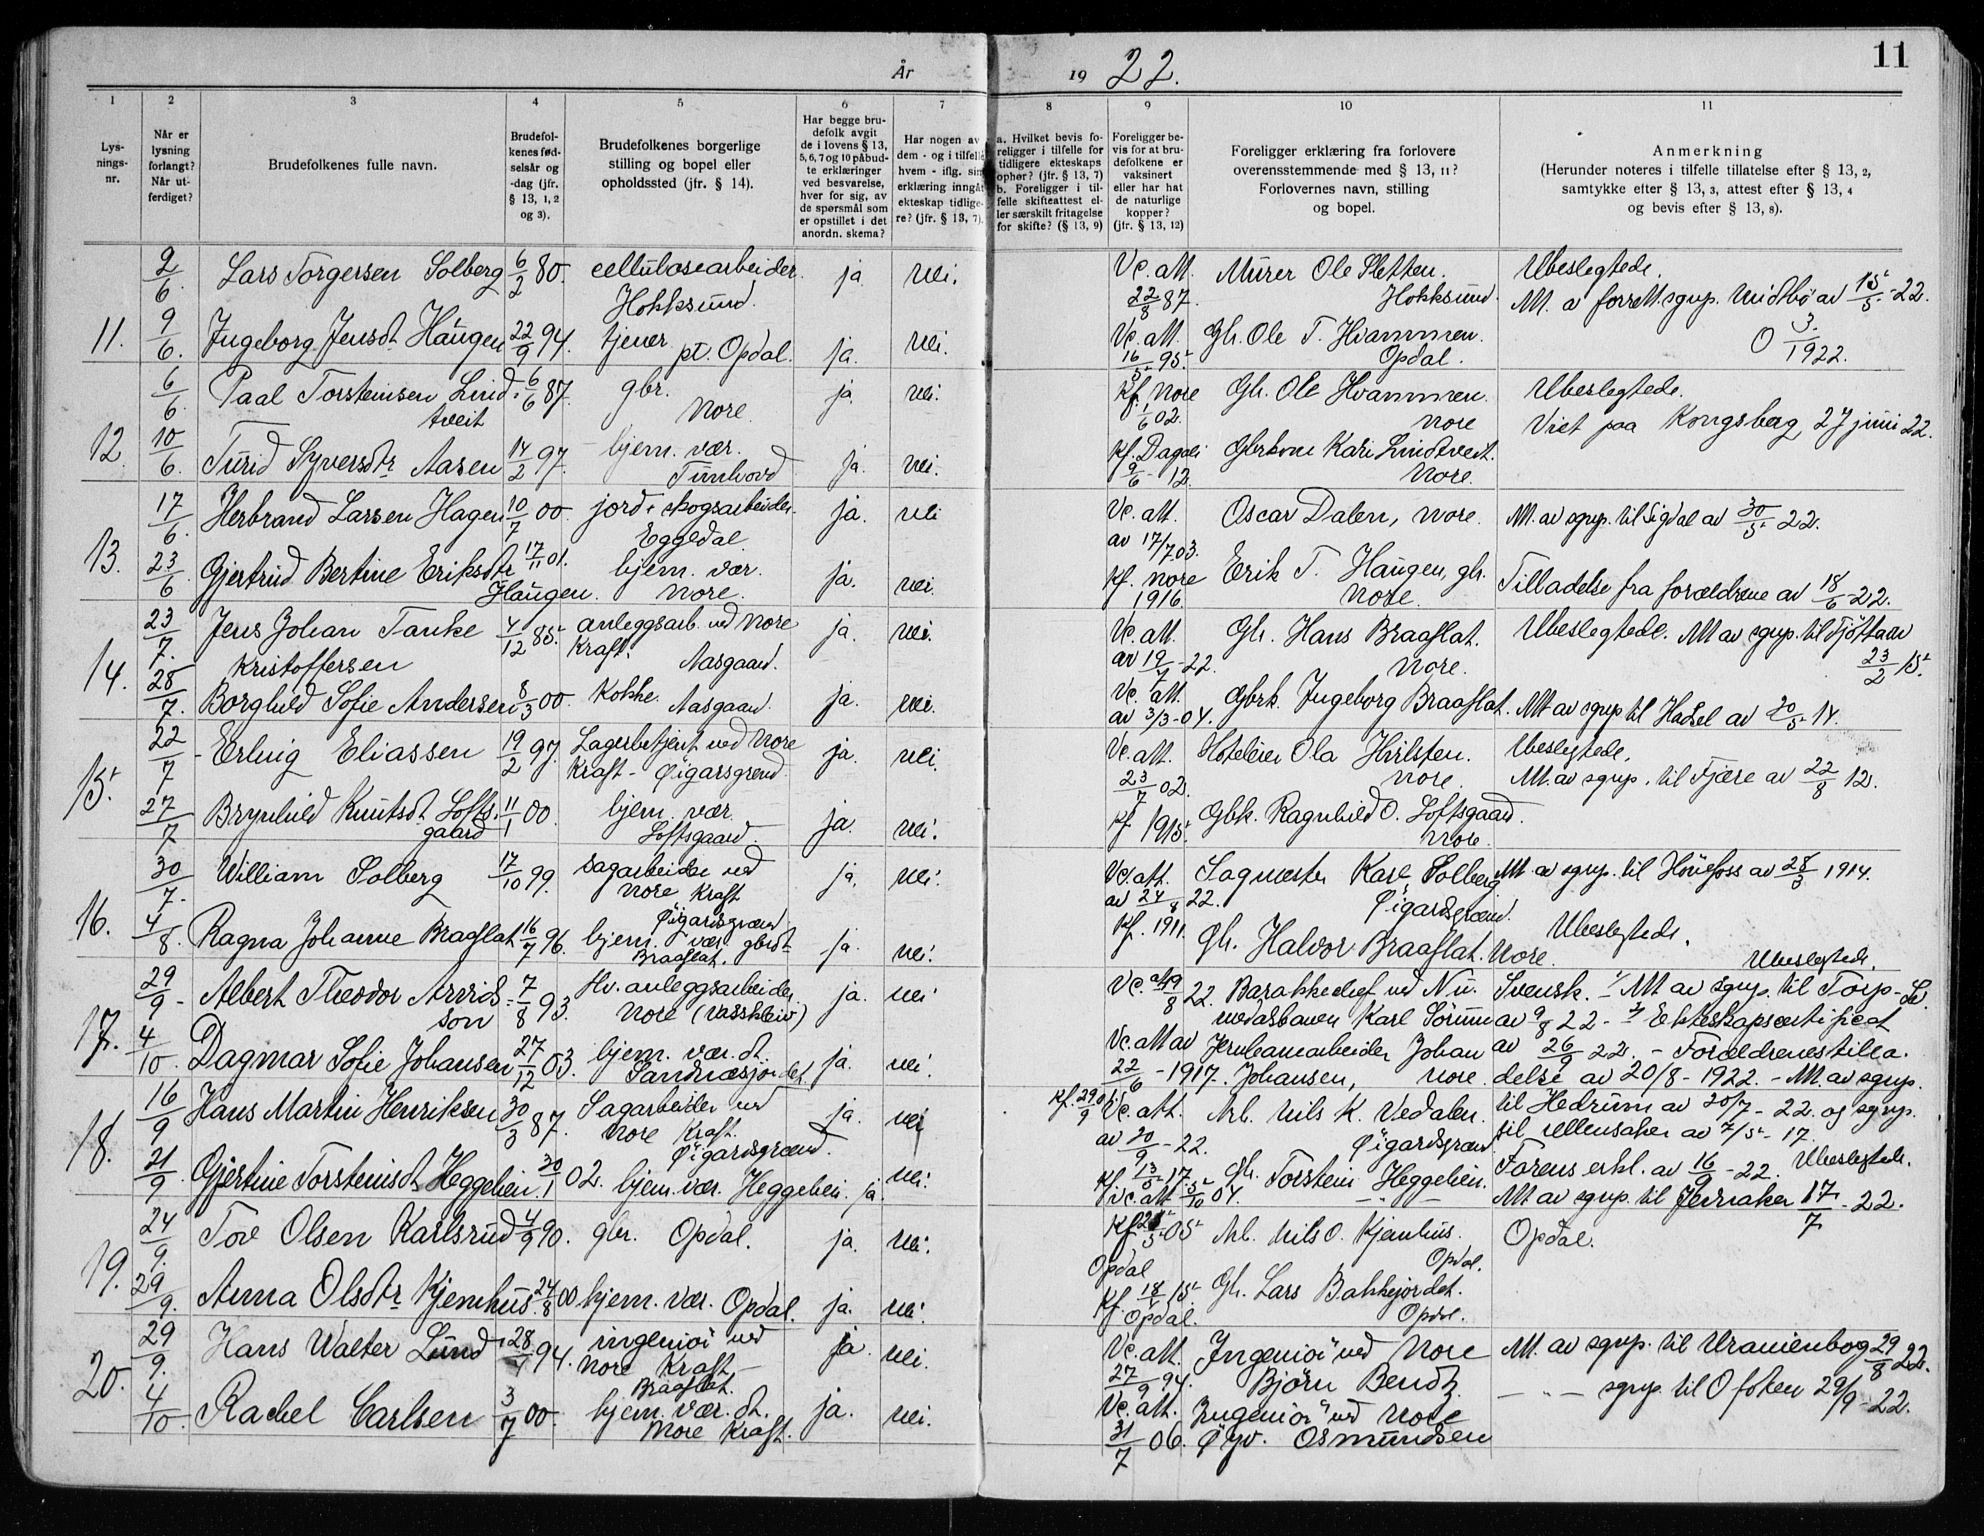 11
År 1922.
1
2
3
4
5
6
7
8
9
10
11
Lysnings-nr.
Når er lysning forlangt? Når utferdiget?
Brudefolkenes fulle navn.
Brudefolkenes fødselsår og -dag (jfr. § 13, 1, 2 og 3).
Brudefolkenes borgerlige stilling og bopel eller opholdssted (jfr. § 14).
Har begge brudefolk avgit de i lovens § 13, 5, 6, 7 og 10 påbudte erklæringer ved besvarelse, hver for sig, av de spørsmål som er opstillet i det anordn. skema?
Har nogen av dem - og i tilfelle hvem - iflg. sin erklæring inngått ekteskap tidligere? (jfr. § 13, 7).
a. Hvilket bevis foreligger i tilfelle for tidligere ekteskaps ophør? (jfr. § 13, 7) b. Foreligger i tilfelle skifteattest eller særskilt fritagelse for skifte? (§ 13, 9)
Foreligger bevis for at brudefolkene er vaksinert eller har hat de naturlige kopper? (jfr. § 13, 12)
Foreligger erklæring fra forlovere overensstemmende med § 13, 11? Forlovernes navn, stilling og bopel.
Anmerkning (Herunder noteres i tilfelle tillatelse efter § 13, 2, samtykke efter § 13, 3, attest efter § 13, 4 og bevis efter § 13, 8).
11.
2/6 Lars Torgersen Solberg 6/2 80. cellulosearbeider. Hokksund. ja nei. Vc. att. 22/8 87. Murer Ole Sletten. Hokksund. Ubeslegtede.
9/6. Ingeborg Jensdt Haugen 22/9 94. tjener pt. Opdal. ja. nei. Vc. att. 16/5 95. Gbr. Ole T. Hvammen. Opdal. 3/1922.
12.
6/6. Paal Torsteinsen Lindtveit 6/6 87. gbr. Nore ja. nei. Kf. Nore 1/6 02. Gbr. Ole Hvammen. Nore Ubeslegtede. Viet paa Kongsberg 27 juni 22.
10/6. Turid Syversdtr Aasen 14/2 97. hjem. vær. Tunhovd ja. nei. Kf. Dagali 9/6 - 12. Gbrkone Kari Lindtveit. Nore.
13.
17/6. Herbrand Larsen Hagen 10/7 00. jord + skogsarbeider. Eggedal ja. nei Vc. att. av 17/7 03. Oscar Dalen, Nore. Att. av sgrp. til Sigdal av 30/5 22.
23/6 Gjertrud Bertine Eriksdtr Haugen. 17/11 01. hjem. vær. Nore. ja. nei. Kf. Nore 1916. Erik T. Haugen, gbr. Nore. Tilladelse fra forældrene av 18/6 22.
14.
23/7. Jens Johan Tanke Kristoffersen 4/12 85. anleggsarb. ved Nore Kraft. Aasgaard. ja. nei. Vc. att. av 19/7 - 22. Gbr. Hans Braaflat. Nore. Ubeslegtede. Att av sgrp. til Tjøtta av 23/2 15.
28/7. Borghild Sofie Andersen 8/3 00. Kokke. Aasgaard. ja. nei. Vc. att. av 3/3-04. Gbrk. Ingeborg Braaflat. Att av sgrp til Hadsel av 20/5 14.
15.
22/7 - Erling Eliassen 19/2 97. Lagerbetjent ved Nore Kraft - Øigarsgrend. ja. nei. Vc. att. 23/7 02. Hoteleier Ola Hvilsten. Nore. Ubeslegtede. Att. av sgrp. til Fjære av 22/8 12.
27/7 Brynhild Knutsdt Loftsgaard 11/1 00. hjem. vær. Loftsgaard. ja. nei. Kf 1915 Gbk. Ragnhild O. Loftsgaard. Nore.
16.
30/7. William Solberg 17/10 99. Sagarbeider ved Nore Kraft Øigardsgrænd ja. nei. Vc. att. av 24/8 22. Sagmester Karl Solberg Øigardsgrænd. Att av sgrp. til Hönefoss av 28/3 1914.
4/8. Ragna Johanne Braaflat 16/7 96. hjem. vær. gbrdt Braaflat. ja. nei. Kf. 1911. Gbr. Halvor Braaflat. Nore. Ubeslegtede.
17.
29/9 - Albert Theodor Arvidsson 7/8 93. Hv. anleggsarbeider. Nore ja. nei Vc. att 19/8 22. Barakkechef ved Numedalsbanen Karl Sörum Svensk. Ubeslegtede. 1/ Att av sgrp. til Torp- av 9/8 22 - 2/ Ekteskapscertificat av 26/9 22.
4/10. Dagmar Sofie Johansen 27/12 03. hjem. vær. dt. Sandnæsjordet. ja. nei. Vc. att av 22/6 - 1917. Jernbanearbeider Johan Johansen, Nore. - Forældrenes tilladelse av 20/8 - 1922. - Att av sgrp. til Hedrum av 20/7 - 22. og sgrp. til Ullensaker av 7/5 - 17.
18.
16/9 Hans Martin Henriksen 30/3 87. Sagarbeider ved Nore Kraft. Øigardsgrænd. ja. nei Vc. att. av 20/9 - 22. Arb. Nils K. Vedalen. Øigardsgrænd
21/9 Gjertine Torsteinsdt Heggelien. 30/1 02. hjem. vær. Heggelien. ja. nei. Vc. att 5/10 04. Gbr. Torstein Heggelien. Farens erkl. av 16/9 - 22. Ubeslegtede. Att av sgrp. til Jevnaker 17/7 - 22.
19.
24/9. Tov Olsen Karlsrud 4/9 90. gbr. Opdal. ja. nei. Kf. 05 Opdal Arb. Nils O. Kjemhus. Opdal. Opdal.
29/9. Anna Olsdtr Kjemhus. 24/8 00 hjem. vær. Opdal. ja. nei. Kf. 15. Opdal. Gbr. Lars Bakkejordet. Opdal.
20.
29/9. Hans Walter Lund 94. ingeniör ved Nore Kraft - Braaflat. ja. nei. Vc. att. 27/9 94. Ingeniör ved Nore Björn Bendz. Att. av sgrp. til Uranienborg 29/8 22.
4/10. Rachel Carlsen 3/7 00. hjem. vær. dt. Nore Kraft. ja. nei. Vc. att. 31/7 06. Ingeniör ved Nore Øyv. Osmundsen — " — sgrp. til Ofoten 29/9 - 22.